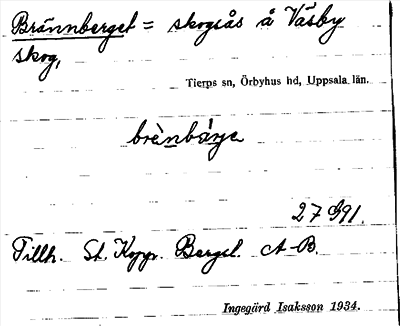 Brännberget = skogsås å Väsby
skog,
Tierps sn, Örbyhus hd, Uppsala län.
brènbárjə
27 991.
Tillh. St. Koppr. Bergsl. A-B.
Ingegärd Isaksson 1934.